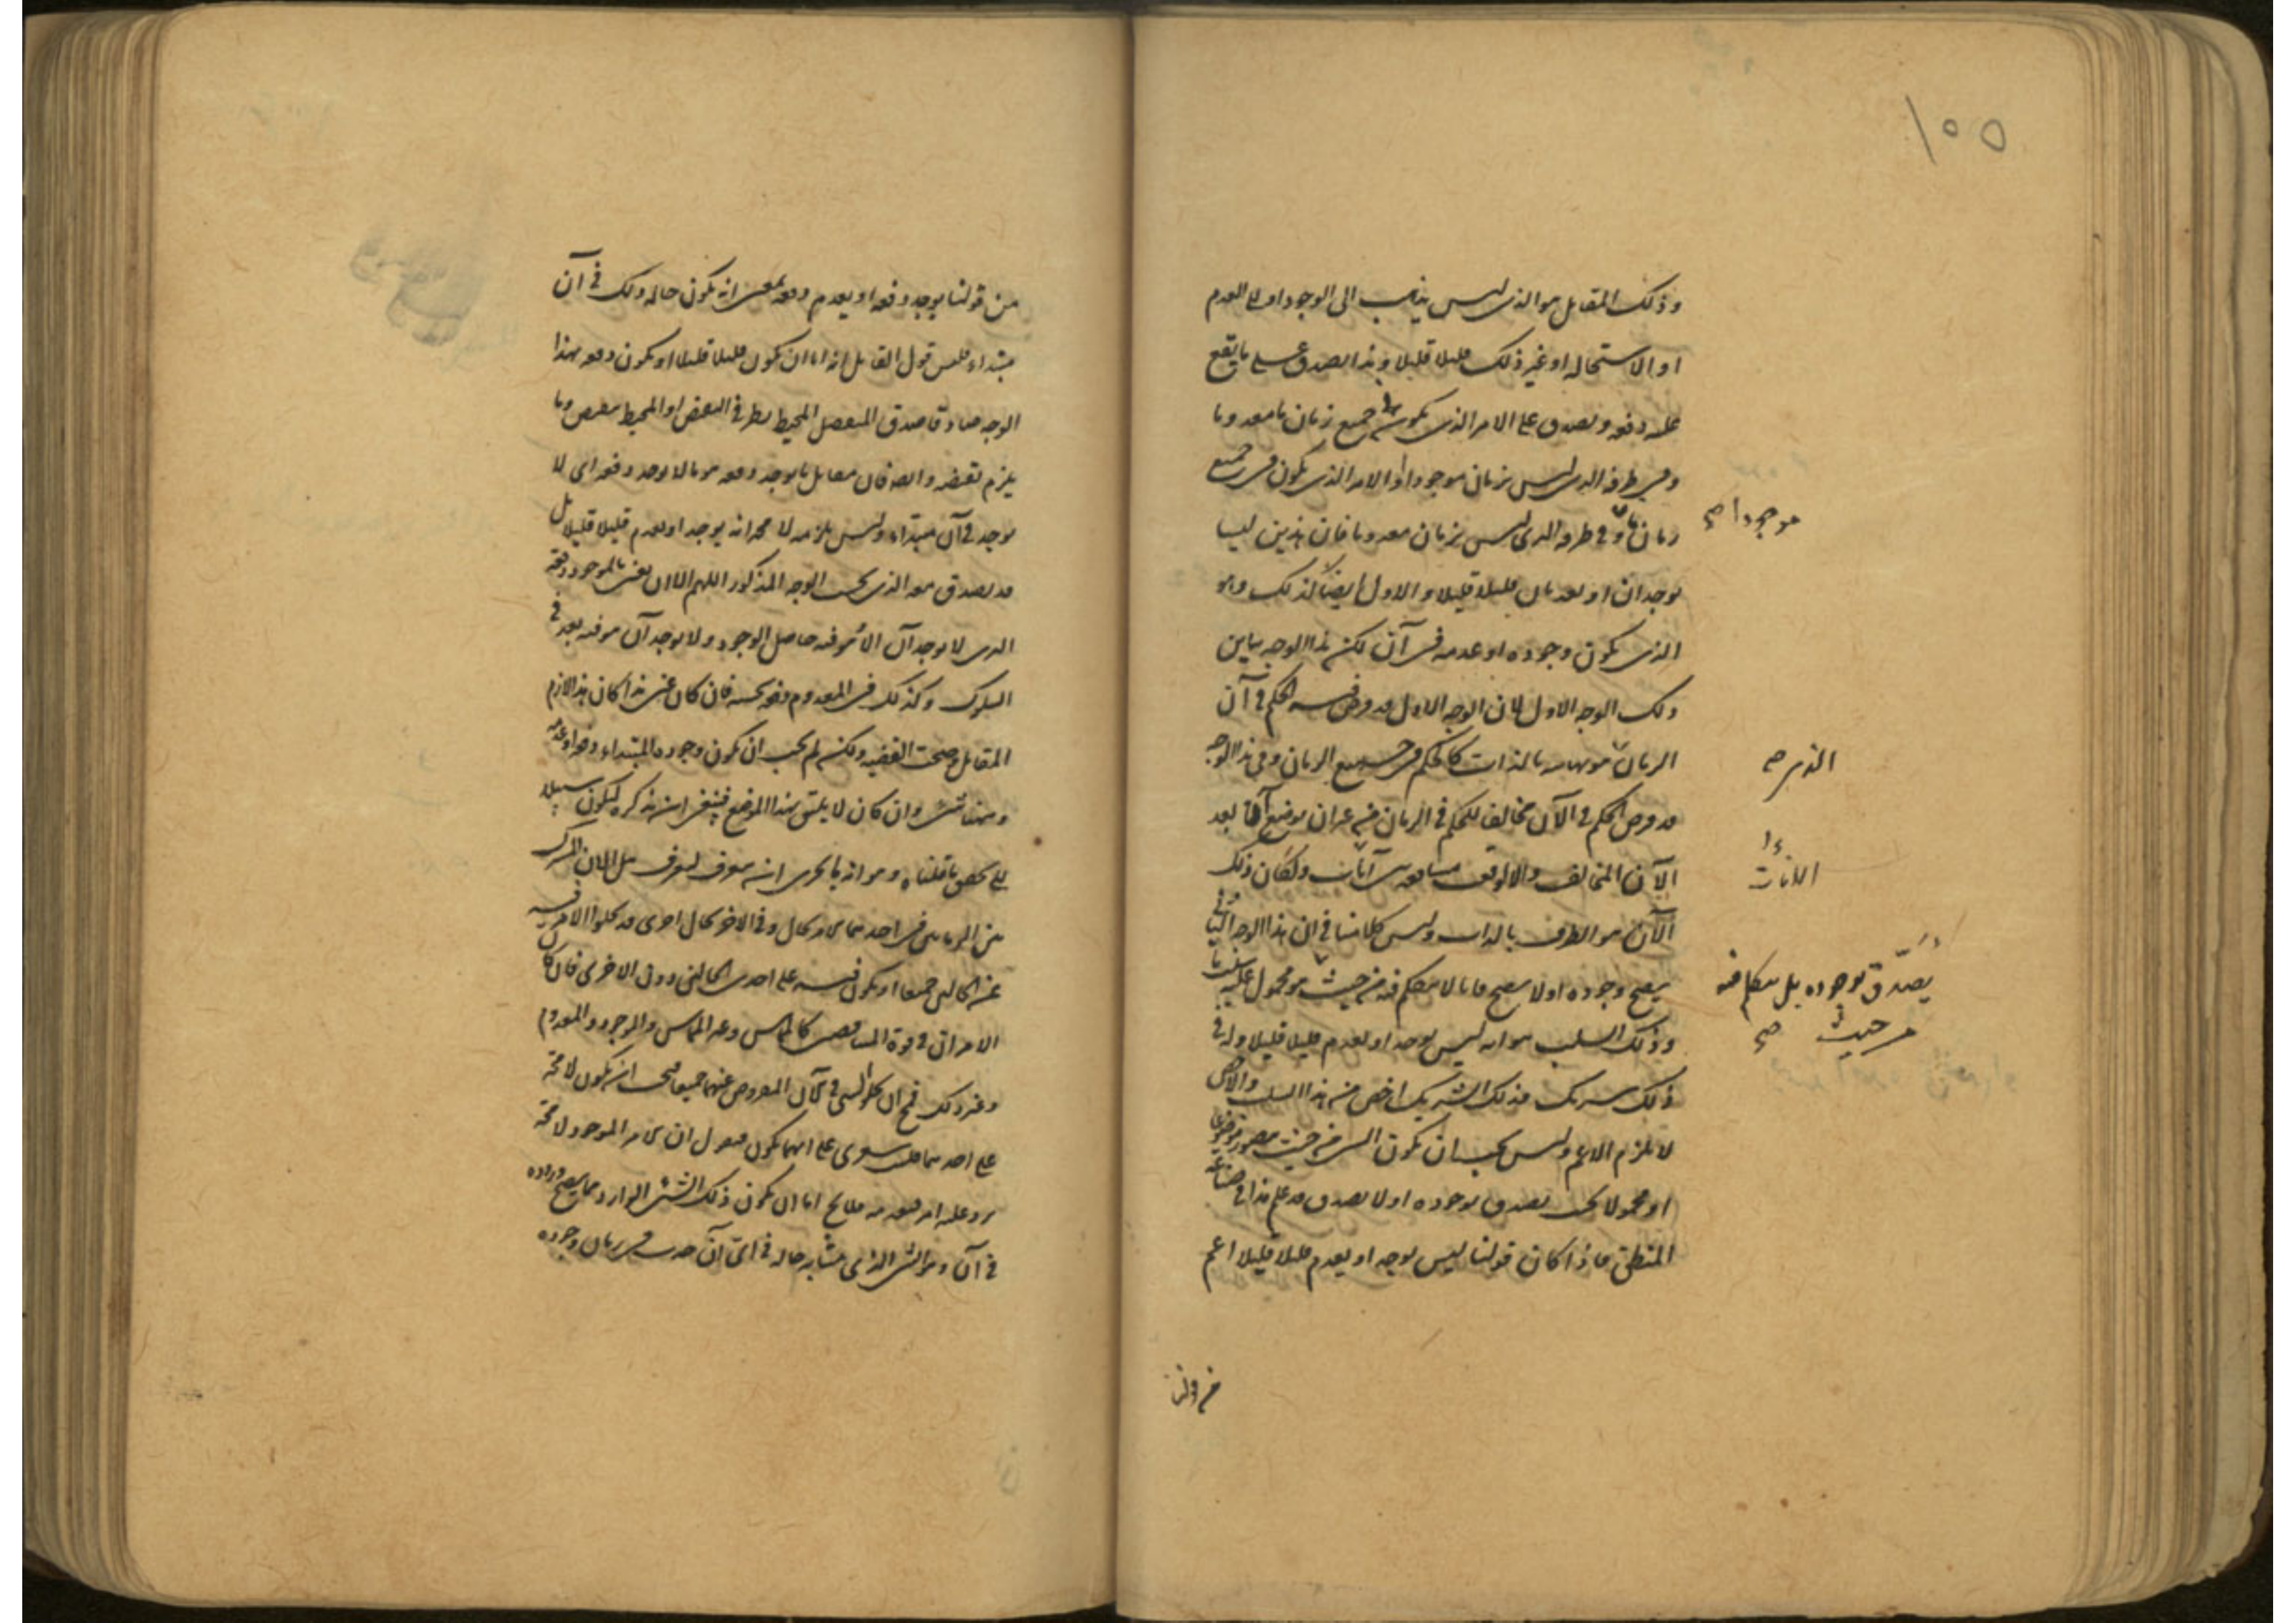 ١٥٥
وذلك المقابل هو الذى ليس يذهب الى الوجود او الى العدم
او الاستحاله او غير ذلك قليلا قليلا وهذا يصدق على ما يقع
عليه دفعه ويصدق على الامر الذى يكون فى جميع زمان ما معدوما
وفى طرفه الذى ليس بزمان موجودا او الامر الذى يكون فى جميع
زمان ما و فى طرفه الذى ليس بزمان معدوما فان هذين ليسا
يوجدان او يعدمان قليلا قليلا و الاول ايضا كذلك وهو
الذى يكون وجوده او عدمه فى آن لكن هذا الوجه يباين
ذلك الوجه الاول لان الوجه الاول قد فرض فيه الحكم فى آن
الزمان هو نهايته بالذات كالحكم فى جميع الزمان وفى هذا الوجه
قد فرض الحكم فى الآن مخالفا للحكم فى الزمان من غير ان يوضع آن بعد
الآن المخالف والا لوقعت مشافعه بين آنات ولكان ذلك
الآن هو الطرف بالذات وليس كلامنا فى ان هذا الوجه الثانى
يصح وجوده او لا يصح فانا لا نتكلم فيه من حيث هو محمول عليه سلب ما
وذلك السلب هو انه ليس يوجد او يعدم قليلا قليلا وله فى
ذلك شريك فذلك الشريك اخص من هذا السلب والاخص
لا يلزم الاعم وليس يجب ان يكون الشى من حيث يتصور موضوعا
او محمولا بحيث يصدق بوجوده او لا يصدق قد علم هذا فى صناعة
المنطق فاذا كان قولنا ليس يوجد او يعدم قليلا قليلا اعم
موجودا صح
الذى صح
الانات
يصدق بوجوده بل نتكلم فيه
من حيث صح
من قولنا
من قولنا يوجد دفعه او يعدم دفعه بمعنى انه يكون حاله ذلك فى آن
مبتداء فليس قول القايل انه اما ان يكون قليلا قليلا او يكون دفعه بهذا
الوجه صادقا صدق المنفصل المحيط بطرفى النقيض او المحيط بنقيض وما
يلزم نقيضه وايضا فان مقابل ما يوجد دفعه هو ما لا يوجد دفعه اى لا
يوجد فى آن مبتداء وليس يلزمه لا محاله انه يوجد او يعدم قليلا قليلا بل
قد يصدق معه الذى بحسب الوجه المذكور اللهم الا ان يعنى بالموجود دفعة
الذى لا يوجد آن الا وهو فيه حاصل الوجود ولا يوجد آن هو فيه بعد فى
السلوك وكذلك فى المعدوم دفعه بحسبه فان كان عنى هذا كان هذا لازم
المقابل وصحت القضيه ولكنه لم يجب ان يكون وجوده المبتداء دفعه او عدمه
وههنا شى وان كان لا يليق بهذا الموضع فينبغى ان نذكره ليكون سبيلا
الى تحقق ما قلناه وهو انه بالحرى ان نتعرف هل الان المشترك
بين الزمانين فى احدهما الامر بحال وفى الاخر بحال اخرى قد يخلو الامر فيه
عن الحالين جميعا او يكون فيه على احدى الحالين دون الاخرى فان كان
الامران فى قوة المتناقضين كالمماس وغير المماس والموجود والمعدوم
وغير ذلك فمح ان يخلو الشى فى الآن المفروض عنهما جميعا فيجب ان يكون لا محة
على احدهما فليت شعرى على ايهما يكون فنقول ان الامر الموجود لا محة
يرد عليه امر فيعدمه فلا يخلو اما ان يكون ذلك الشى الوارد مما يصح وروده
فى آن وهو الشى الذى يتشابه حاله فى اى آن اخذت فى زمان وجوده